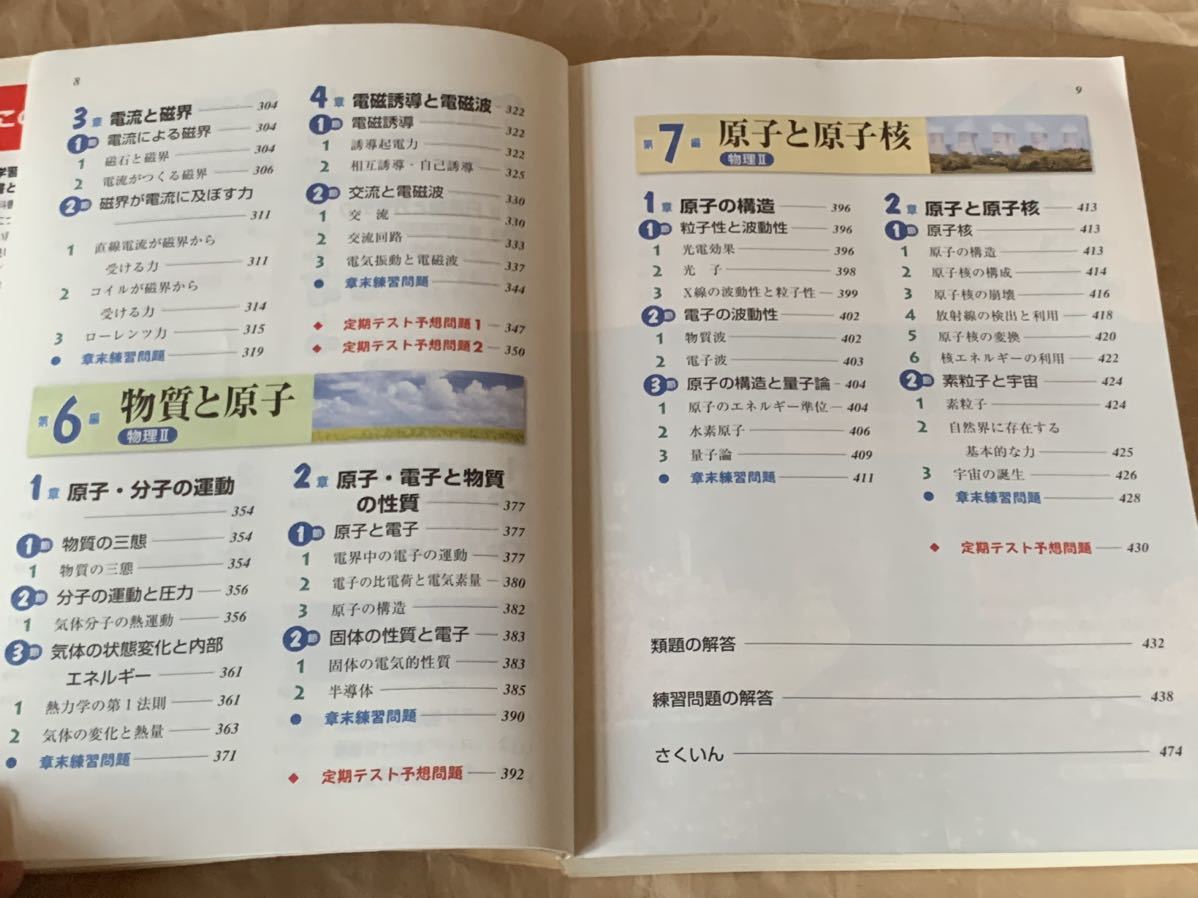 8
3章 電流と磁界 304
1節 電流による磁界 304
1 磁石と磁界 304
2 電流がつくる磁界 306
2節 磁界が電流に及ぼす力
311
1 直線電流が磁界から
受ける力 311
2 コイルが磁界から
受ける力 314
3 ローレンツ力 315
● 章末練習問題 319
4章 電磁誘導と電磁波 322
1節 電磁誘導 322
1 誘導起電力 322
2 相互誘導・自己誘導 325
2節 交流と電磁波 330
1 交 流 330
2 交流回路 333
3 電気振動と電磁波 337
● 章末練習問題 344
◆ 定期テスト予想問題1 347
◆ 定期テスト予想問題2 350
第6編 物質と原子
物理Ⅱ
1章 原子・分子の運動
354
1節 物質の三態 354
1 物質の三態 354
2節 分子の運動と圧力 356
1 気体分子の熱運動 356
3節 気体の状態変化と内部
エネルギー 361
1 熱力学の第1法則 361
2 気体の変化と熱量 363
● 章末練習問題 371
2章 原子・電子と物質
の性質 377
1節 原子と電子 377
1 電界中の電子の運動 377
2 電子の比電荷と電気素量 380
3 原子の構造 382
2節 固体の性質と電子 383
1 固体の電気的性質 383
2 半導体 385
● 章末練習問題 390
◆ 定期テスト予想問題 392
9
第7編 原子と原子核
物理Ⅱ
1章 原子の構造 396
1節 粒子性と波動性 396
1 光電効果 396
2 光 子 398
3 X線の波動性と粒子性 399
2節 電子の波動性 402
1 物質波 402
2 電子波 403
3節 原子の構造と量子論 404
1 原子のエネルギー準位 404
2 水素原子 406
3 量子論 409
● 章末練習問題 411
2章 原子と原子核 413
1節 原子核 413
1 原子の構造 413
2 原子核の構成 414
3 原子核の崩壊 416
4 放射線の検出と利用 418
5 原子核の変換 420
6 核エネルギーの利用 422
2節 素粒子と宇宙 424
1 素粒子 424
2 自然界に存在する
基本的な力 425
3 宇宙の誕生 426
● 章末練習問題 428
◆ 定期テスト予想問題 430
類題の解答 432
練習問題の解答 438
さくいん 474